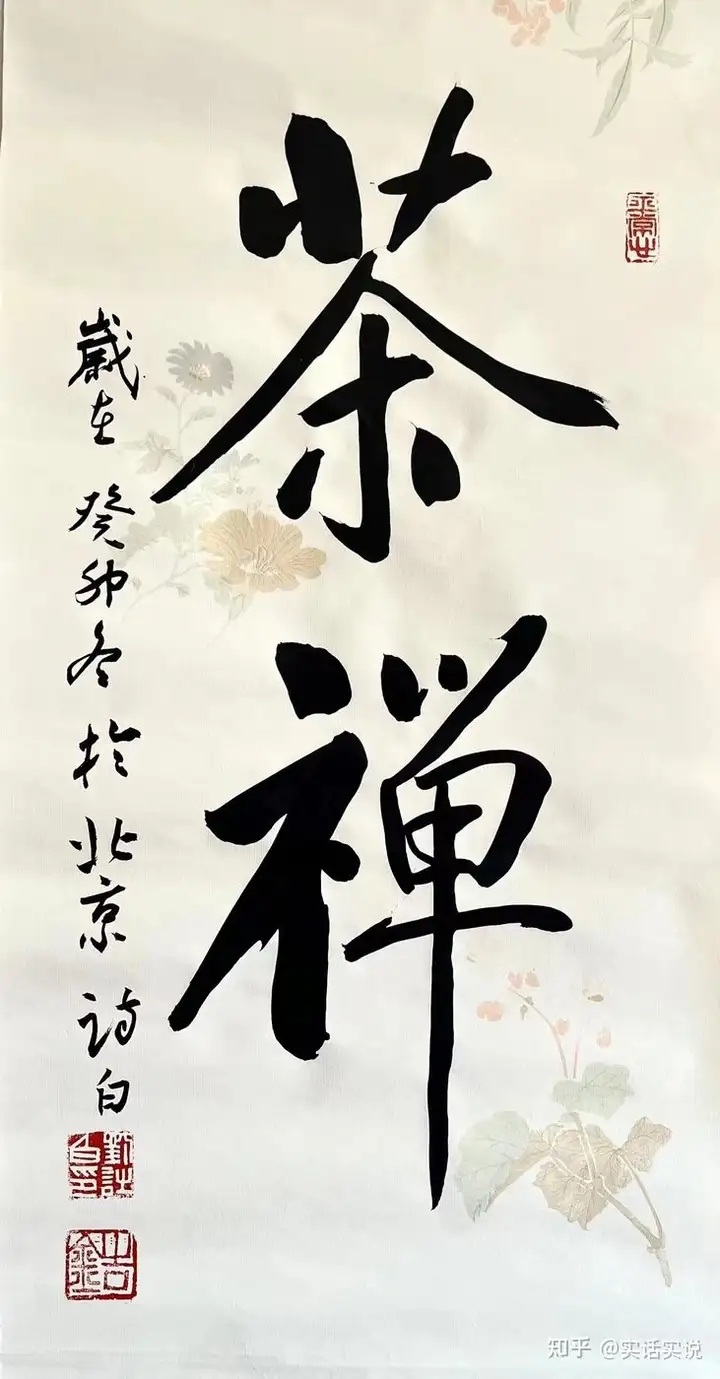 茶禅
歲在癸卯冬於北京 诗白
知乎 @实话实说